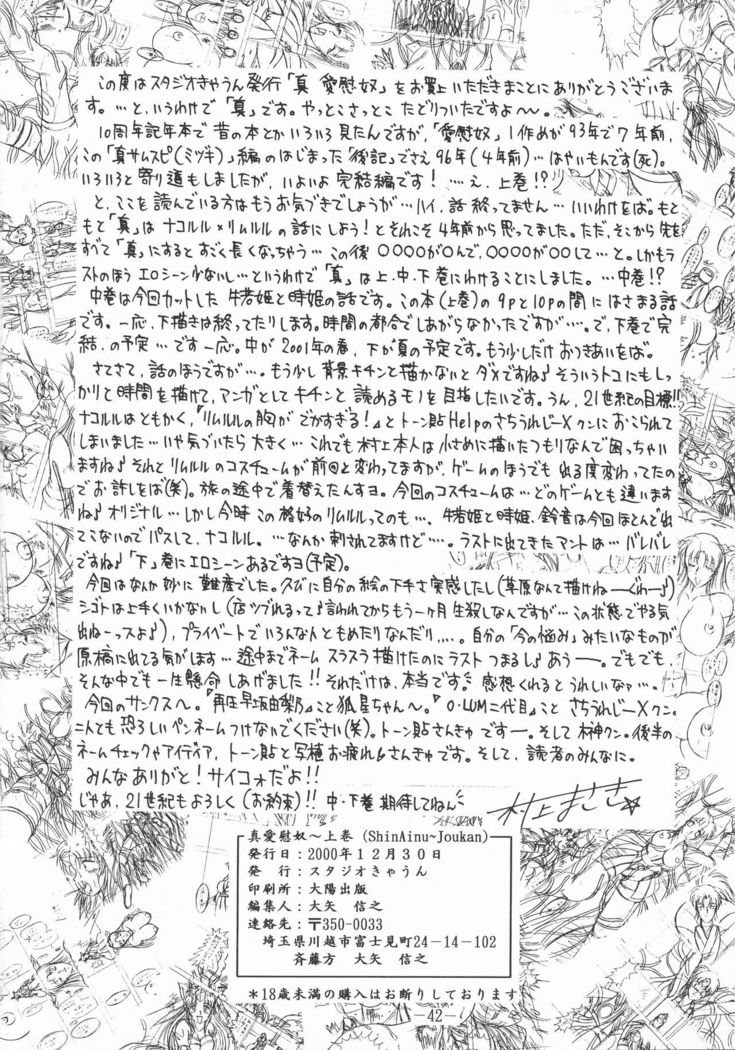 この度はスタジオきゃうん発行「真 愛慰奴」をお買上いただきまことにありがとうございま
す。…と、いうわけで「真」です。やっとこさっとこ たどりついたですよ〜〜。
10周年記年本で昔の本とかいろいろ見たんですが、「愛慰奴」1作めが93年で7年前、
この「真サムスピ(ミヅキ)」編のはじまった「後記」でさえ96年(4年前)…はやいもんです(死)。
いろいろと寄り道もしましたが、いよいよ完結編です! …え、上巻!?
と、ここを読んでいる方はもうお気づきでしょうが…ハイ、話終ってません…いいわけをば。もと
もと「真」はナコルル×リムルルの話にしよう!とそれこそ4年前から思ってました。ただ、そこから先を
すべて「真」にするとすごく長くなっちゃう…この後○○○○が○んで、○○○○が○○して…と。しかもラ
ストのほうエロシーン少ないし…というわけで「真」は上・中・下巻にわけることにしました。…中巻!?
中巻は今回カットした牛若姫と時姫の話です。この本(上巻)の9pと10pの間にはさまる話
です。一応、下描きは終ってたりします。時間の都合でしあがらなかったですが…。で、下巻で完
結、の予定…です一応。中が2001年の春、下が夏の予定です。もう少しだけおつきあいをば。
さてさて、話のほうですが…。もう少し背景キチンと描かないとダメですね♪そういうトコにもしっ
かりと時間を描けて、マンガとしてキチンと読めるモノを目指したいです。うん、21世紀の目標!!
ナコルルはともかく、『リムルルの胸がでかすぎる!』とトーン貼HelpのさちうれじーXクンにおこられて
しまいました…いや気づいたら大きく…これでも村上本人は小さめに描いたつもりなんで困っちゃい
ますね♪それとリムルルのコスチュームが前回と変わってますが、ゲームのほうでも出る度変わってたの
でお許しをば(笑)。旅の途中で着替えたんすヨ。今回のコスチュームは…どのゲームとも違います
ね♪オリジナル…しかし今時この格好のリムルルってのも…、牛若姫と時姫、鈴音は今回ほとんど出
てこないのでパスして、ナコルル。…なんか刺されてますけど…。ラストに出てきたアントは…バレバレ
ですね♪「下」巻にエロシーンあるですヨ(予定)。
今回はなんか妙に難産でした。久びに自分の絵の下手さ実感したし(草原なんて描けね――ぐわ―♪)
シゴトは上手くいかないし(店ツブれるって♪言われてからもう一ヶ月生殺しなんですが…この状態でやる気
出ねーっスよ♪)、プライベートでいろんな人ともめたりなんだり…。自分の「今の悩み」みたいなものが
原稿に出てる気がします…途中までネームスラスラ描けたのにラストつまるし♪あう―。でもでも、
そんな中でも一生懸命しあげました!!それだけは、本当です。感想くれるとうれしいなァ…。
今回のサンクスへ。『再圧早坂由梨乃』こと狐月ちゃんへ。『O・LUM二代目』こと さちうれじーXクン。
二人とも恐ろしいペンネームつけないでください(笑)。トーン貼さんきゅですー。そして林神クン。後半の
ネームチェックやアイディア、トーン貼と写植お疲れ♪さんきゅです。そして、読者のみんなに。
みんなありがと!サイコォだよ!!
じゃあ、21世紀もよろしく(お約束)!! 中・下巻期待してねん
村上まさき☆
真愛慰奴〜上巻(ShinAinu~Joukan)
発行日:2000年12月30日
発 行:スタジオきゃうん
印刷所:大陽出版
編集人:大矢 信之
連絡先:〒350-0033
埼玉県川越市富士見町24−14−102
斉藤方 大矢 信之
*18歳未満の購入はお断りしております
-42-